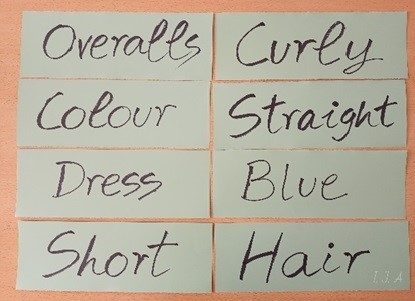 Overalls Curly
Colour Straight
Dress Blue
Short Hair
I.J.A